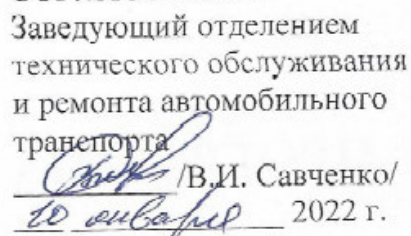 Заведующий отделением
технического обслуживания
и ремонта автомобильного
транспорта
/В.И. Савченко/
10 января 2022 г.